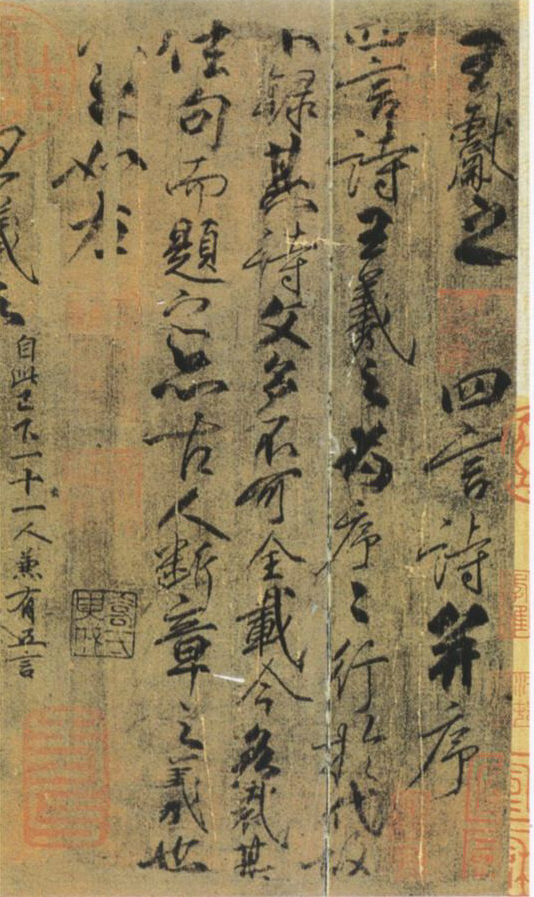 王獻之 四言詩并序
四言詩王羲之為序〻行於代故
不錄其詩文多不可全載今各裁其
佳句而題之亦古人斷章之義也
如左
羲之 自此已下一十一人兼有五言